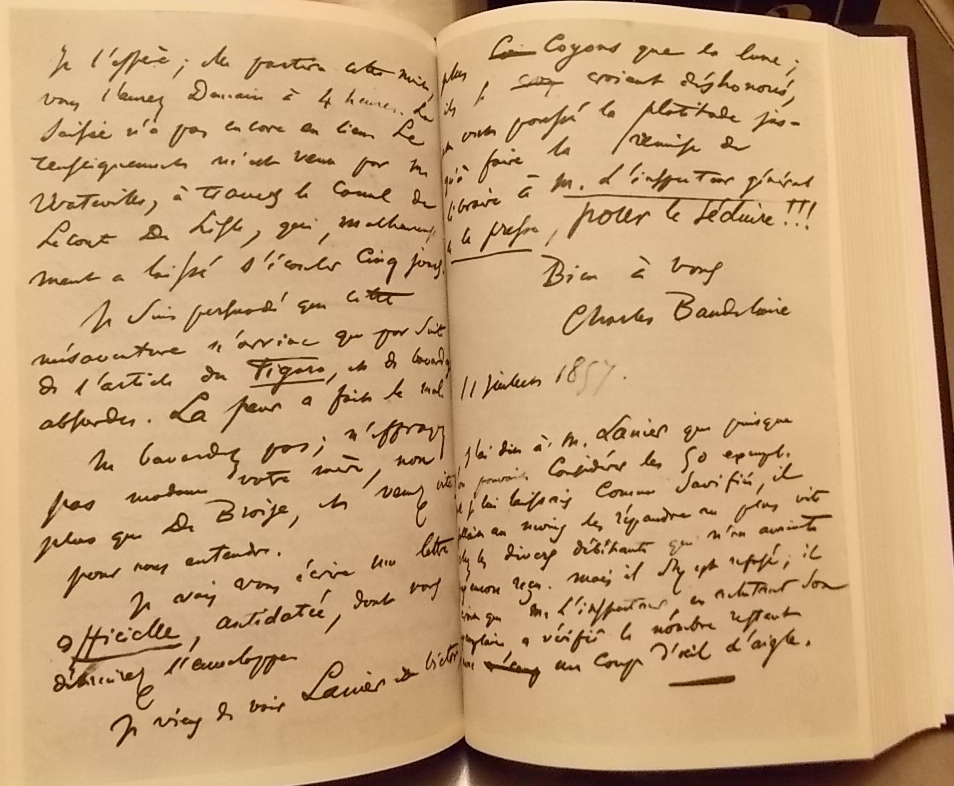 Je l'espère; elle partira cette nuit,
vous l'aurez Demain à 4 heures. La
Saisie n'a pas encore eu lieu. Le
renseignement m'est venu par M
Watteville, à travers le Canal de
Leconte De Lisle, qui, malheureuse
ment a laissé s'écouler Cinq jours.
Je Suis persuadé que cette
mésaventure n'arrive que par Suite
de l'article du Figaro, et de bavardages
absurdes. La peur a fait le mal.
Ne bavardez pas; n'effrayez
pas madame votre mère, non
plus que De Broise, et venez vite
pour nous entendre.
Je vais vous écrire une lettre
Officielle, antidatée, dont vous
détruirez l'enveloppe.
Je viens de voir Lanier et Victor
plus Coyons que la lune;
ils se croient déshonorés,
ont poussé la platitude jus-
qu'à faire la remise de
libraire à M. l'inspecteur général
de la presse, pour le Séduire!!!
Bien à vous
Charles Baudelaire
11 juillet 1857.
J'ai dit à M. Lanier que puisque
on pouvait Considérer les 50 exempl.
que j'ai laissés Comme Sacrifiés, il
fallait au moins les répandre au plus vite
chez les divers débitants qui n'en avaient
encore reçu. mais il s'y est refusé; il
que M. l'inspecteur, en achetant Son
exemplaire a vérifié le nombre restant
un Coup d'œil d'aigle.